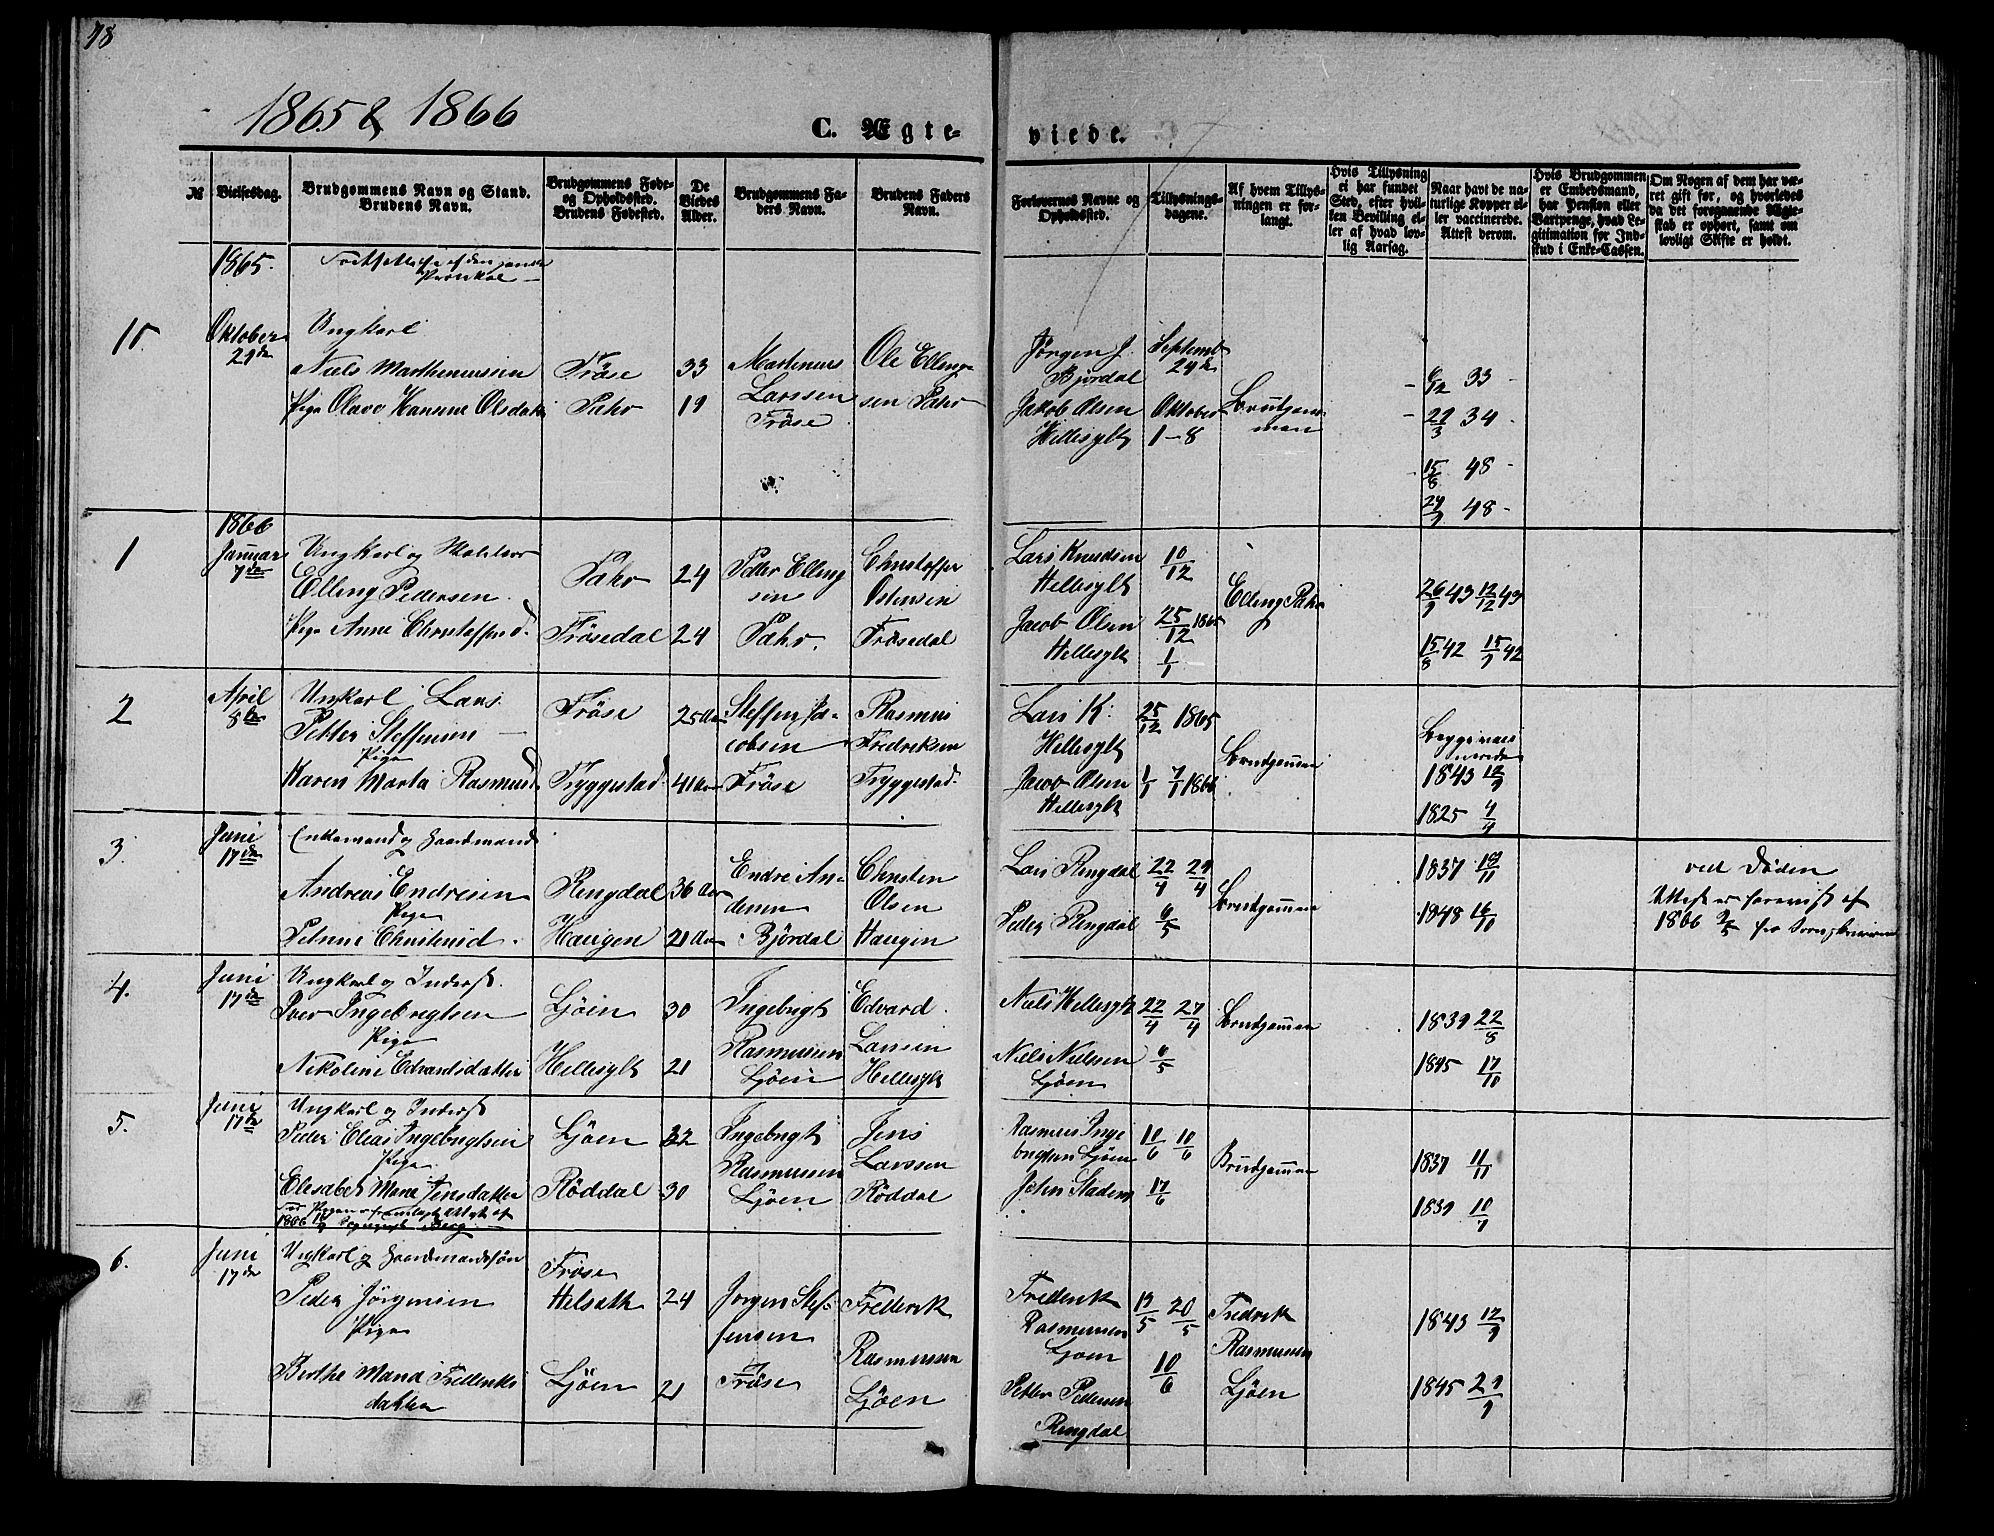 78
1865 & 1866
C. Ægte-
viede.
№
Vielsesdag.
Brudgommens Navn og Stand.
Brudens Navn.
Brudgommens Føde-
og Opholdssted.
Brudens Fødested.
De
Viedes
Alder.
Brudgommens Fa-
ders Navn.
Brudens Faders
Navn.
Forlovernes Navne og
Opholdssted.
Tillysnings-
dagene.
Af hvem Tillys-
ningen er for-
langt.
Hvis Tillysning
ei har fundet
Sted, efter hvil-
ken Bevilling el-
ler af hvad lov-
lig Aarsag.
Naar havt de na-
turlige Kopper el-
ler vaccinerede.
Attest derom.
Hvis Brudgommen
er Embedsmand,
har Pension eller
Vartpenge, hvad Le-
gitimation for Ind-
skud i Enke-Cassen.
Om Nogen af dem har væ-
ret gift før, og hvorledes
da det foregaaende Ægte-
skab er ophørt, samt om
lovligt Skifte er holdt.
1865.
11.
Oktober
21de
Ungkarl
Niels Marthinussen
Pige Olave Hansine Olsdatt
Fröse
Taho
33
19
Martinus
Larssen
Fröse
Ole Elling-
sen Taho
Jørgen J.
Bjørdal
Jakob Olsen
Hellesylt
Septemb
24de
Oktober
1-8
Brudgom-
men
6/12 33
29/3 34
15/8 48
24/9 48
1
1866
Januar
7de
Ungkarl og
Elling Pedersen
Pige Anne Christoffersd.
Taho
Frösedal
24
24
Peder Elling
sen
Taho.
Christoffer
Ostensen
Frösedal
Lars Knudsen
Hellesylt
Jacob Olsen
Hellesylt
10/12
25/12 1865
1/1
Elling Taho
26/9 43 12/12 43
15/8 42 15/9 42
2
April
8de
Ungkarl Lars
Petter Steffensen
Pige
Karen Marta Rasmusd
Fröse
Tryggestad
25 Aar
41 Aar
Steffen Ja-
cobsen
Fröse
Rasmus
Fredriksen
Tryggestad
Lars K.
Hellesylt
Jacob Olsen
Hellesylt
25/12 1865
1/1 7/1 1866
Brudgommen
Begge vaci
nerede
1843 12/9
1825 4/4
3
Juni
17de
Enkemand og Gaardmand
Andreas Endresen
Pige
Petrine Christensd.
Ringdal
Haugen
36 Aar
21 Aar
Endre An-
dersen
Bjørdal
Christen
Olsen
Haugen
Lars Ringdal
Peder Ringdal
22/4 29/4
6/5
Brudgommen
1837 18/11
1848 16/10
ved Døden
Attest er forevist af
1866 2/5 fra Sorenskriveren
4.
Juni
17de
Ungkarl og Inderst.
Iver Ingebrigtsen
Pige
Nikoline Edvardsdatter
Ljöen
Hellesylt
30
21
Ingebrigt
Rasmussen
Ljöen
Edvard
Larsen
Hellesylt
Niels Hellesylt
Niels Nielsen
Ljöen
22/4 29/4
6/5
Brudgommen
1839 22/8
1845 17/10
5.
Juni
17de
Ungkarl og Inderst
Peder Elias Ingebrigtsen
Pige
Elisabet Marie Jensdatter
Ljöen
Röddal
32
30
Ingebrigt
Rasmussen
Ljöen
Jens
Larssen
Röddal
Rasmus Inge
brigtsen Ljöen
John Stadem
10/6 10/6
17/6
Brudgommen
1837 11/11
1839 10/9
6.
Juni
17de
Ungkarl og Gaardmandssøn
Peder Jörgensen
Pige
Berthe Maria Frederiks
datter
Fröse
Helsæth
Ljöen
24
21
Jørgen Stef-
fensen
Fröse
Frederik
Rasmussen
Ljöen
Frederik
Rasmussen
Ljöen
Petter Pedersen
Ringdal
19/5 20/5
10/6
Fredrik
Rasmussen
Ljöen
1843 12/9
1845 29/9